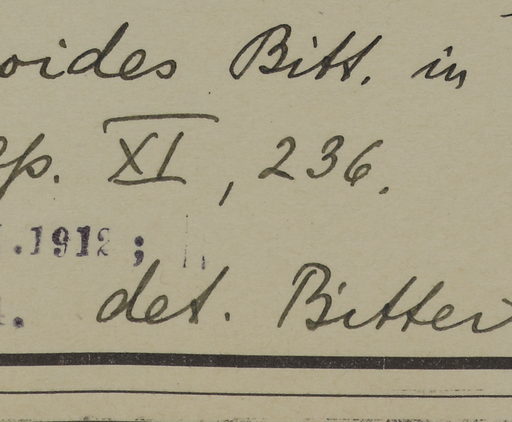 oides Bitt. in
Sp. XI, 236.
.1912;
det. Bitter